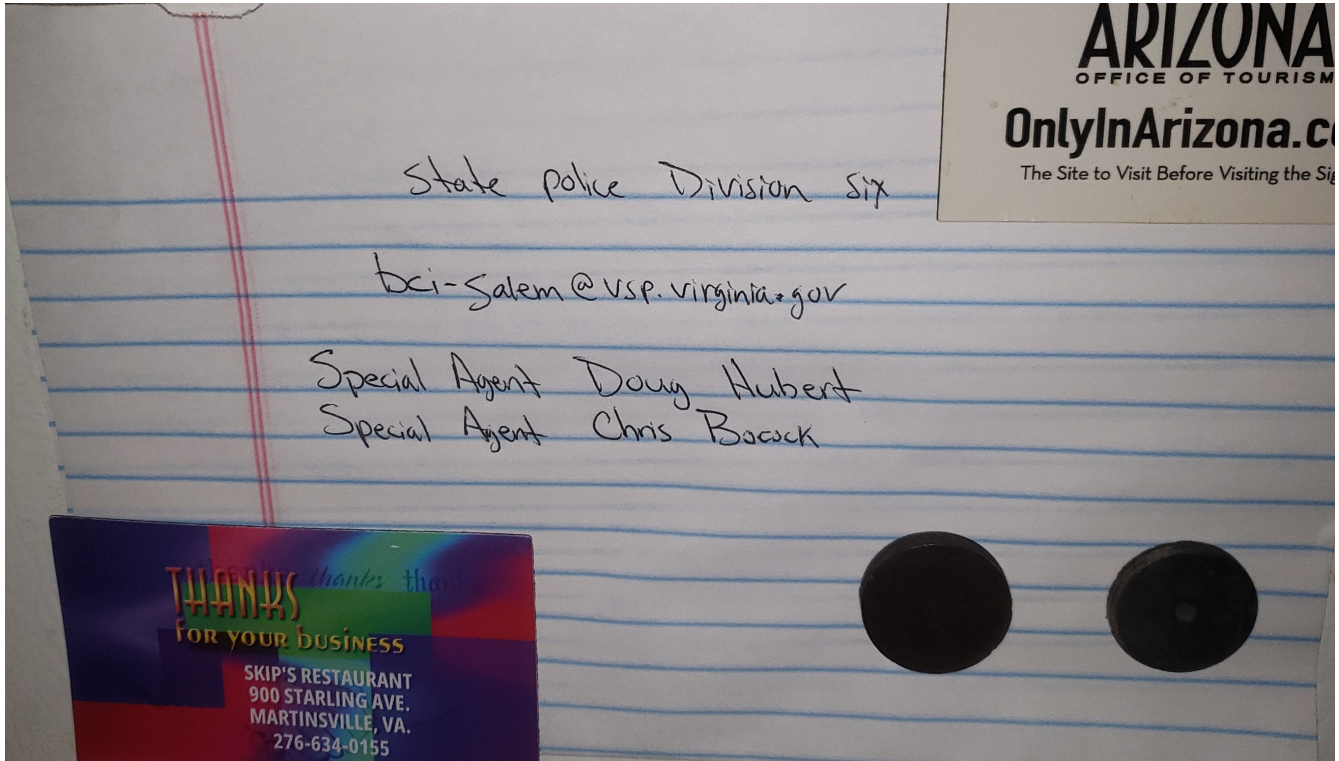 ARIZONA
OFFICE OF TOURISM
OnlyInArizona.c
The Site to Visit Before Visiting the
State police Division Six
bci-salem@vsp.virginia.gov
Special Agent Doug Hubert
Special Agent Chris Bocock
thanks thanks
THANKS
FOR YOUR BUSINESS
SKIP'S RESTAURANT
900 STARLING AVE.
MARTINSVILLE, VA.
276-634-0155